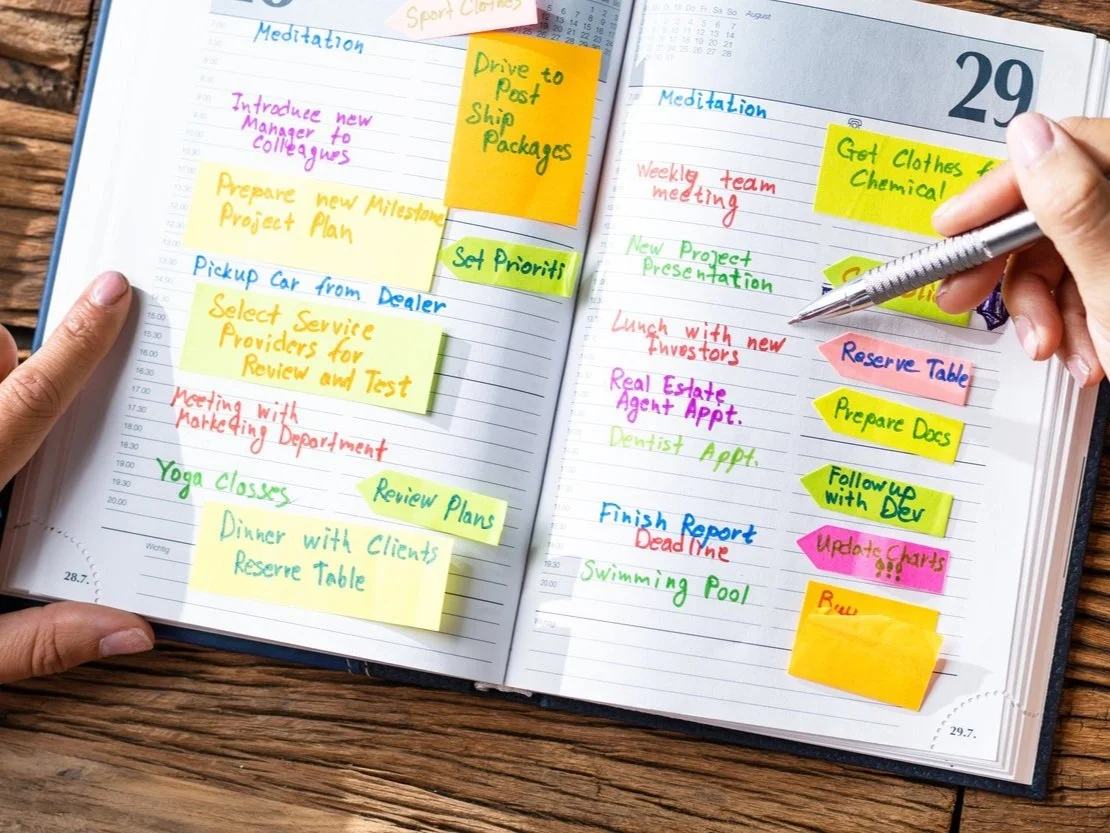 Sport Clothes
Meditation
Introduce new
Manager to
Colleagues
Drive to
Post
Ship
Packages
Prepare new Milestone
Project Plan
Set Prioriti
Pickup Car from Dealer
Select Service
Providers for
Review and Test
Meeting with
Marketing Department
Yoga Classes
Review Plans
Dinner with Clients
Reserve Table
Wichtig
28.7.
Fr Sa So
August
29
Meditation
Get Clothes
Chemical
Weekly team
meeting
New Project
Presentation
Lunch with new
Investors
Reserve Table
Real Estate
Agent Appt.
Prepare Docs
Dentist Appt.
Follow up
with Dev
Finish Report
Deadline
Update Charts
!!!
Swimming Pool
Buy
29.7.